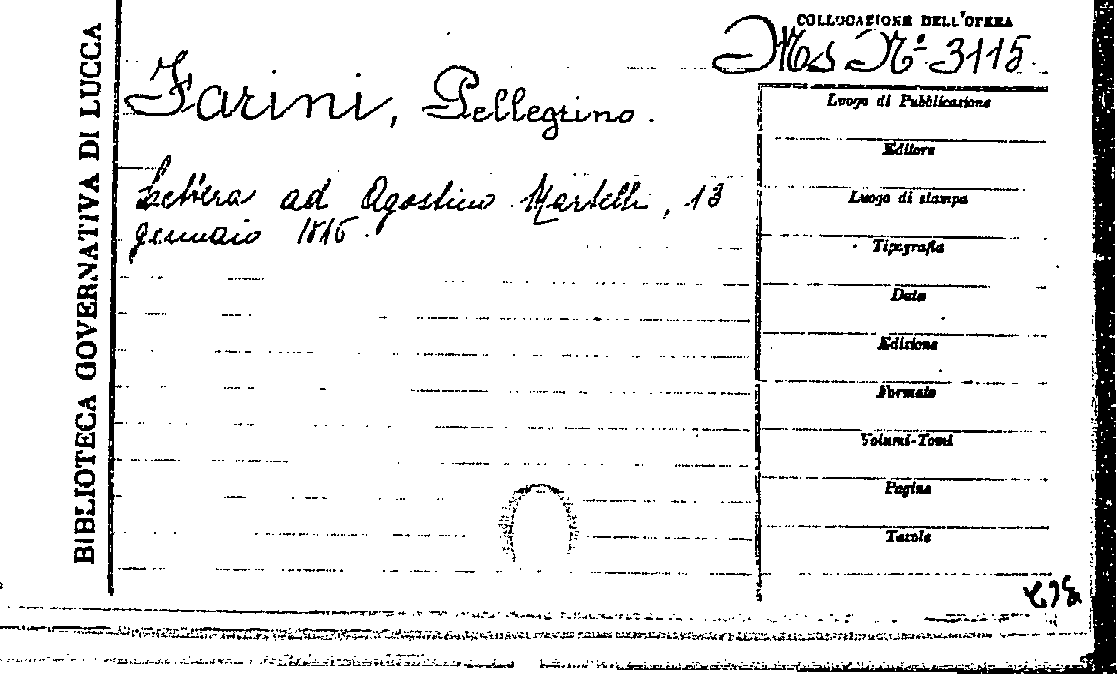 BIBLIOTECA GOVERNATIVA DI LUCCA
COLLOCAZIONE DELL'OPERA
Ms Nº 3115.
Farini, Pellegrino.
Lettera ad Agostino Martelli, 13
gennaio
Luogo di Pubblicazione
Editore
Luogo di stampa
Tipografia
Data
Edizione
Formato
Volumi-Tomi
Pagine
Tavole